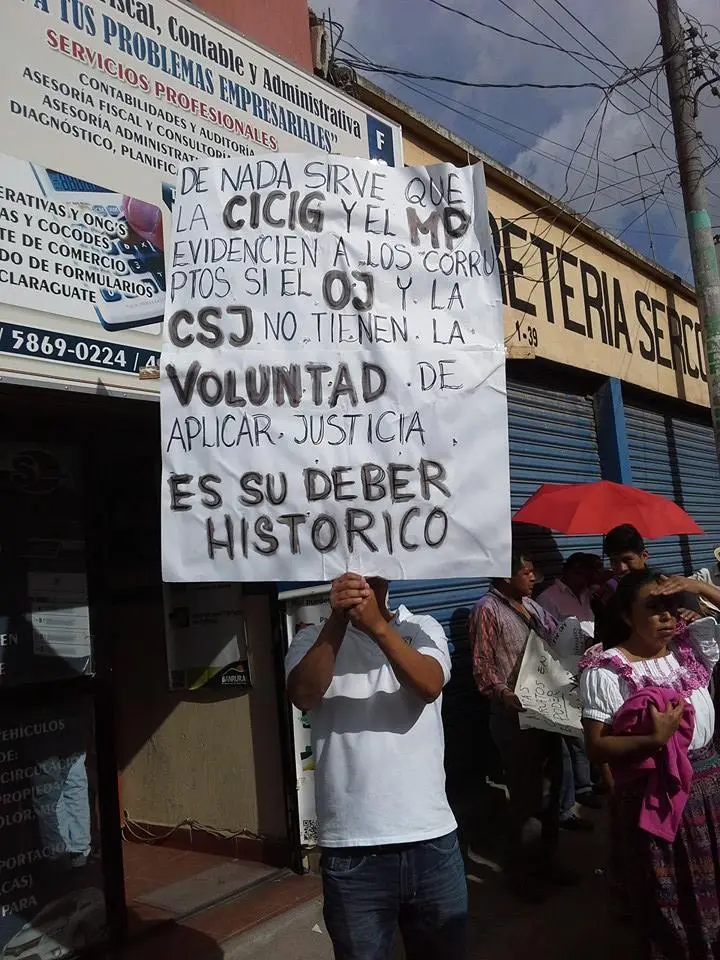 iscal, Contable y Administrativa
A TUS PROBLEMAS EMPRESARIALES"
SERVICIOS PROFESIONALES
CONTABILIDADES Y AUDITORÍA
ASESORÍA FISCAL Y CONSULTORI
ASESORÍA ADMINISTRAT
DIAGNÓSTICO, PLANIFIC
F
ERATIVAS Y ONG'S
AS Y COCODES
TE DE COMERCIO
DO DE FORMULARIOS
CLARAGUATE
/ 5869-0224 / 4
DE NADA SIRVE QUE
LA CICIG Y EL MP
EVIDENCIEN A LOS CORRU
PTOS SI EL OJ Y LA
CSJ NO TIENEN LA
VOLUNTAD DE
APLICAR JUSTICIA.
ES SU DEBER
HISTORICO
RETERIA SERCO
1-39
BANRURA
EN
VEHÍCULOS
DE:
CIRCULACI
PROPIEDA
OLOR-MO
PORTACIO
CAS)
PARA